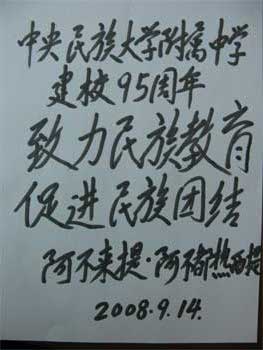 中央民族大学附属中学
建校95周年
致力民族教育
促进民族团结
阿不来提·阿不都热西提
2008.9.14.